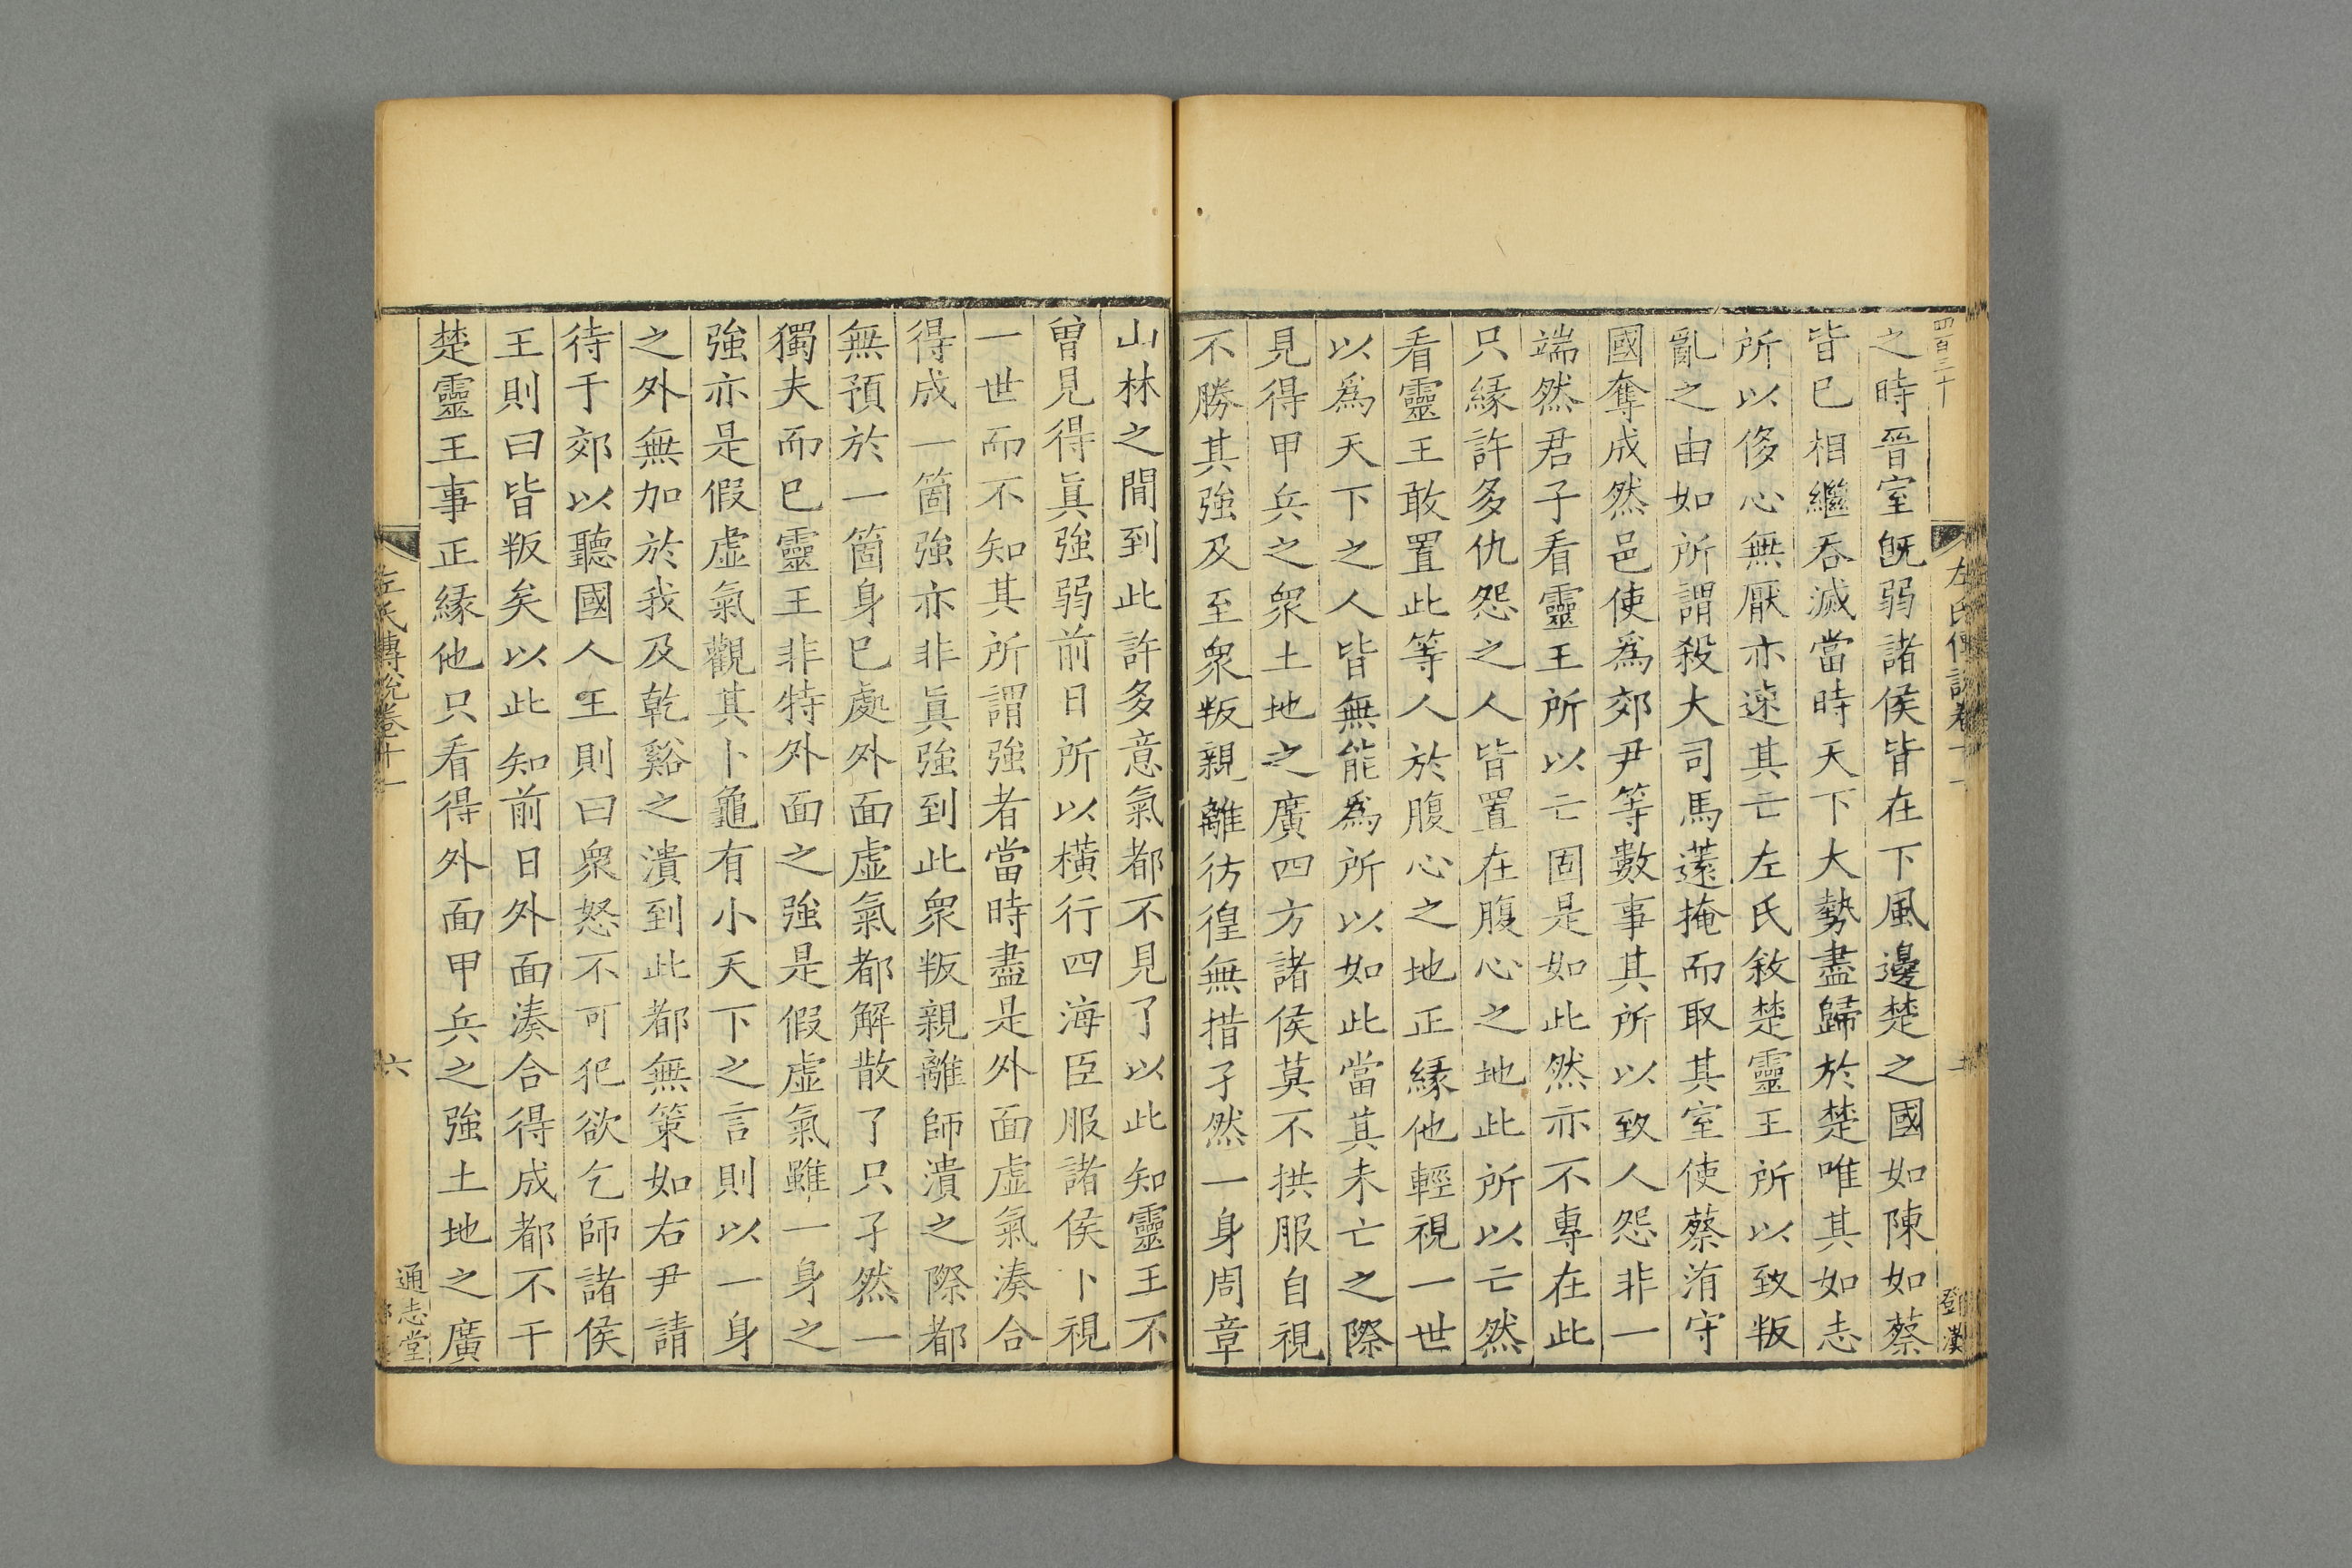 四百三十
左氏傳說卷十一
之時晉室旣弱諸侯皆在下風邊楚之國如陳如蔡
皆已相繼吞滅當時天下大勢盡歸於楚唯其如志
所以侈心無厭亦速其亡左氏敘楚靈王所以致叛
亂之由如所謂殺大司馬薳掩而取其室使蔡洧守
國奪成然邑使爲郊尹等數事其所以致人怨非一
端然君子看靈王所以亡固是如此然亦不專在此
只緣許多仇怨之人皆置在腹心之地此所以亡然
看靈王敢置此等人於腹心之地正緣他輕視一世
以爲天下之人皆無能爲所以如此當其未亡之際
見得甲兵之衆土地之廣四方諸侯莫不拱服自視
不勝其強及至衆叛親離彷徨無措孑然一身周章
山林之間到此許多意氣都不見了以此知靈王不
曾見得眞強弱前日所以橫行四海臣服諸侯卜視
一世而不知其所謂強者當時盡是外面虛氣湊合
得成一箇強亦非眞強到此衆叛親離師潰之際都
無預於一箇身已處外面虛氣都解散了只孑然一
獨夫而已靈王非特外面之強是假虛氣雖一身之
強亦是假虛氣觀其卜龜有小天下之言則以一身
之外無加於我及乾谿之潰到此都無策如右尹請
待于郊以聽國人王則曰衆怒不可犯欲乞師諸侯
王則曰皆叛矣以此知前日外面湊合得成都不干
楚靈王事正緣他只看得外面甲兵之強土地之廣
左氏傳說卷十一
六
通志堂